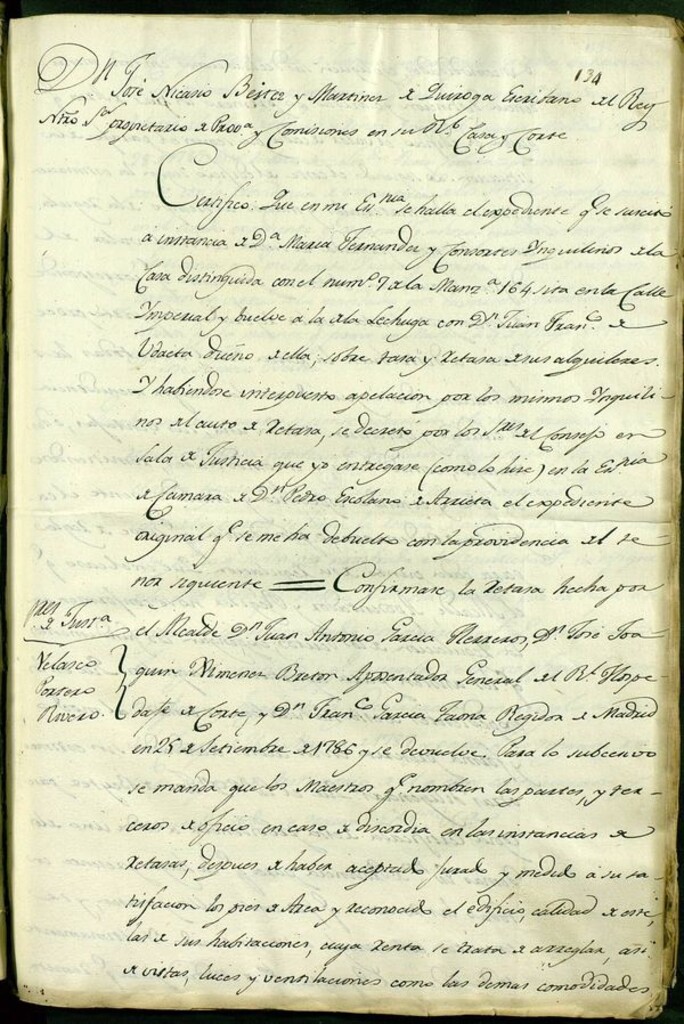 134
Dn José Nicasio Bertez y Martinez de Quiroga Escribano del Rey
Ntro. Sr. propietario de Prova. y Comisiones en su Rl. Casa y Corte
Certifico. Que en mi Esnia. se halla el expediente q. se suscitó
á instancia de Da. Maria Fernandez y Consortes Ynquilinos de la
Casa distinguida con el num.o 7 de la Manza. 164 sita en la Calle
Ymperial y buelve á la de la Lechuga con Dn. Juan Franco. de
Udaeta dueño de ella, sobre tasa y retasa de sus alquileres.
Y habiendose interpuesto apelacion por los mismos Ynquili-
nos del auto de retasa, se decretó por los Sres. del Consejo en
Sala de Justicia que yo entregase (como lo hice) en la Esnia
de Camara de Dn. Pedro Escolano de Arrieta el expediente
original q. se me ha debuelto con la providencia del te-
nor siguiente = Confirmase la retasa hecha por
el Alcalde Dn. Juan Antonio Garcia Herreros, Dn. José Joa-
quin Ximenez Breton Aposentador General del Rl. Hospe-
daje de Corte, y Dn. Franco. Garcia Taona Regidor de Madrid
en 25 de Setiembre de 1786 y se devuelve. Para lo subcesivo
se manda que los Maestros q. nombren las partes, y ter-
ceros de oficio en caso de discordia en las instancias de
retasas, despues de haber aceptado jurado y medido á su sa-
tisfacion los pies de Area y reconocido el edificio, calidad de este,
las de sus habitaciones, cuya renta se trata de arreglar, asi
de vistas, luces y ventilaciones como las demas comodidades
Sres. de Justa.
Velasco
Portero
Rivero.